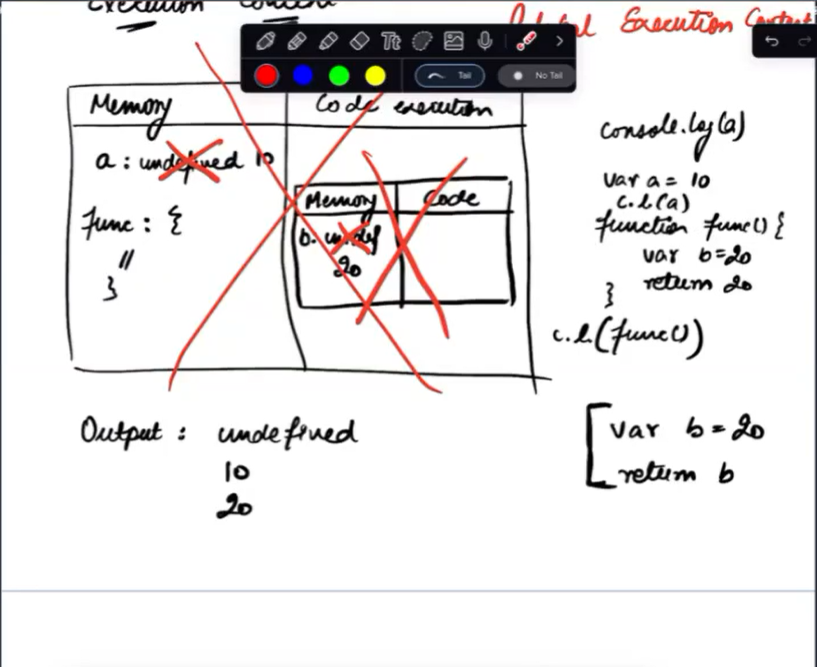 Execution Context
Global Execution Context
Tt
Tail
No Tail
Memory
Code execution
a : undefined 10
func : {
//
}
Memory
Code
b. undef
20
console.log(a)
var a = 10
c.l(a)
function func() {
var b=20
return 20
}
c.l.(func())
Output : undefined
10
20
var b = 20
return b